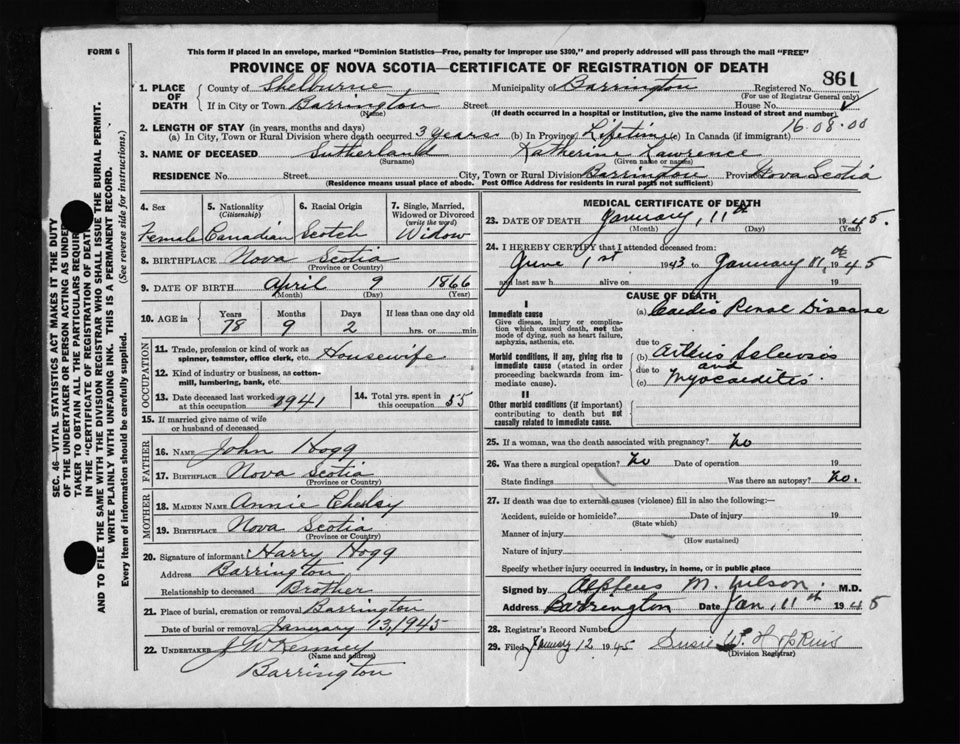 FORM 6
This form if placed in an envelope, marked "Dominion Statistics—Free, penalty for improper use $300," and properly addressed will pass through the mail "FREE"
PROVINCE OF NOVA SCOTIA—CERTIFICATE OF REGISTRATION OF DEATH
861
1. PLACE OF DEATH County of Shelburne Municipality of Barrington Registered No.
(For use of Registrar General only)
If in City or Town Barrington Street House No.
(Name) (If death occurred in a hospital or institution, give the name instead of street and number)
2. LENGTH OF STAY (in years, months and days) 16.08.00
(a) In City, Town or Rural Division where death occurred 3 years (b) In Province Lifetime (c) In Canada (if immigrant)
3. NAME OF DECEASED Sutherland Katherine Lawrence
(Surname) (Given name or names)
RESIDENCE No. Street City, Town or Rural Division Barrington Province Nova Scotia
(Residence means usual place of abode. Post Office Address for residents in rural parts not sufficient)
4. Sex Female
5. Nationality (Citizenship) Canadian
6. Racial Origin Scotch
7. Single, Married, Widowed or Divorced (write the word) Widow
8. BIRTHPLACE Nova Scotia
(Province or Country)
9. DATE OF BIRTH April 9 1866
(Month) (Day) (Year)
10. AGE in Years Months Days If less than one day old
78 9 2 hrs. or min.
OCCUPATION
11. Trade, profession or kind of work as spinner, teamster, office clerk, etc. Housewife
12. Kind of industry or business, as cotton-mill, lumbering, bank, etc.
13. Date deceased last worked at this occupation 1941
14. Total yrs. spent in this occupation 55
15. If married give name of wife or husband of deceased
FATHER
16. NAME John Hogg
17. BIRTHPLACE Nova Scotia
(Province or Country)
MOTHER
18. MAIDEN NAME Annie
19. BIRTHPLACE Nova Scotia
(Province or Country)
20. Signature of informant Harry Hogg
Address Barrington
Relationship to deceased Brother
21. Place of burial, cremation or removal Barrington
Date of burial or removal January 13, 1945
22. UNDERTAKER J W Kenney
(Name and address)
Barrington
MEDICAL CERTIFICATE OF DEATH
23. DATE OF DEATH January, 11th 1945.
(Month) (Day) (Year)
24. I HEREBY CERTIFY that I attended deceased from:
June 1st 1943 to January 11th 1945
and last saw h alive on 19
CAUSE OF DEATH
I
Immediate cause
Give disease, injury or complication which caused death, not the mode of dying, such as heart failure, asphyxia, asthenia, etc.
(a) Cardio Renal Disease
due to
Morbid conditions, if any, giving rise to immediate cause (stated in order proceeding backwards from immediate cause).
(b) Arterio Sclerosis
and
due to
(c) Myocarditis.
II
Other morbid conditions (if important) contributing to death but not causally related to immediate cause.
25. If a woman, was the death associated with pregnancy? No
26. Was there a surgical operation? No Date of operation 19
State findings Was there an autopsy? No.
27. If death was due to external causes (violence) fill in also the following:—
Accident, suicide or homicide? Date of injury 19
(State which)
Manner of injury
(How sustained)
Nature of injury
Specify whether injury occurred in industry, in home, or in public place
Signed by Alpheus M. Wilson. M.D.
Address Barrington Date Jan, 11th 1945
28. Registrar's Record Number
29. Filed January 12 1945 Susie W. Hopkins
(Division Registrar)
SEC. 46—VITAL STATISTICS ACT MAKES IT THE DUTY
OF THE UNDERTAKER OR PERSON ACTING AS UNDER
TAKER TO OBTAIN ALL THE PARTICULARS REQUIR
IN THE "CERTIFICATE OF REGISTRATION OF DEATH
AND TO FILE THE SAME WITH THE DIVISION REGISTRAR WHO SHALL ISSUE THE BURIAL PERMIT.
WRITE PLAINLY WITH UNFADING INK. THIS IS A PERMANENT RECORD.
Every item of information should be carefully supplied. (See reverse side for instructions.)